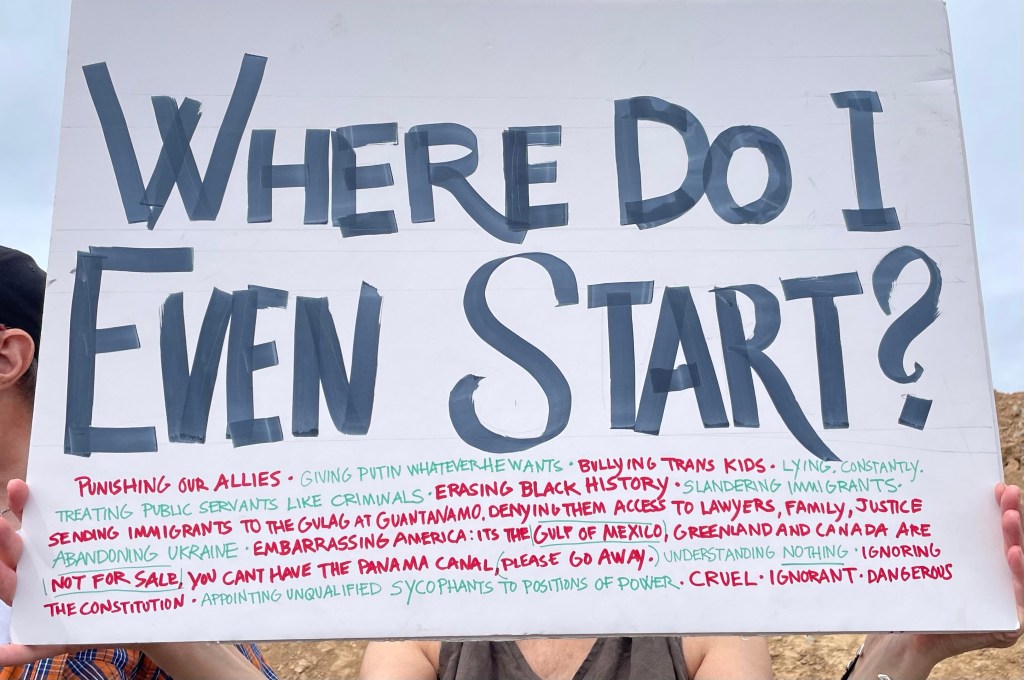 WHERE DO I
EVEN START?
PUNISHING OUR ALLIES · GIVING PUTIN WHATEVER HE WANTS · BULLYING TRANS KIDS · LYING. CONSTANTLY.
TREATING PUBLIC SERVANTS LIKE CRIMINALS · ERASING BLACK HISTORY · SLANDERING IMMIGRANTS ·
SENDING IMMIGRANTS TO THE GULAG AT GUANTANAMO. DENYING THEM ACCESS TO LAWYERS, FAMILY, JUSTICE
ABANDONING UKRAINE · EMBARRASSING AMERICA: ITS THE GULF OF MEXICO, GREENLAND AND CANADA ARE
NOT FOR SALE, YOU CANT HAVE THE PANAMA CANAL, (PLEASE GO AWAY.) UNDERSTANDING NOTHING · IGNORING
THE CONSTITUTION · APPOINTING UNQUALIFIED SYCOPHANTS TO POSITIONS OF POWER · CRUEL · IGNORANT · DANGEROUS